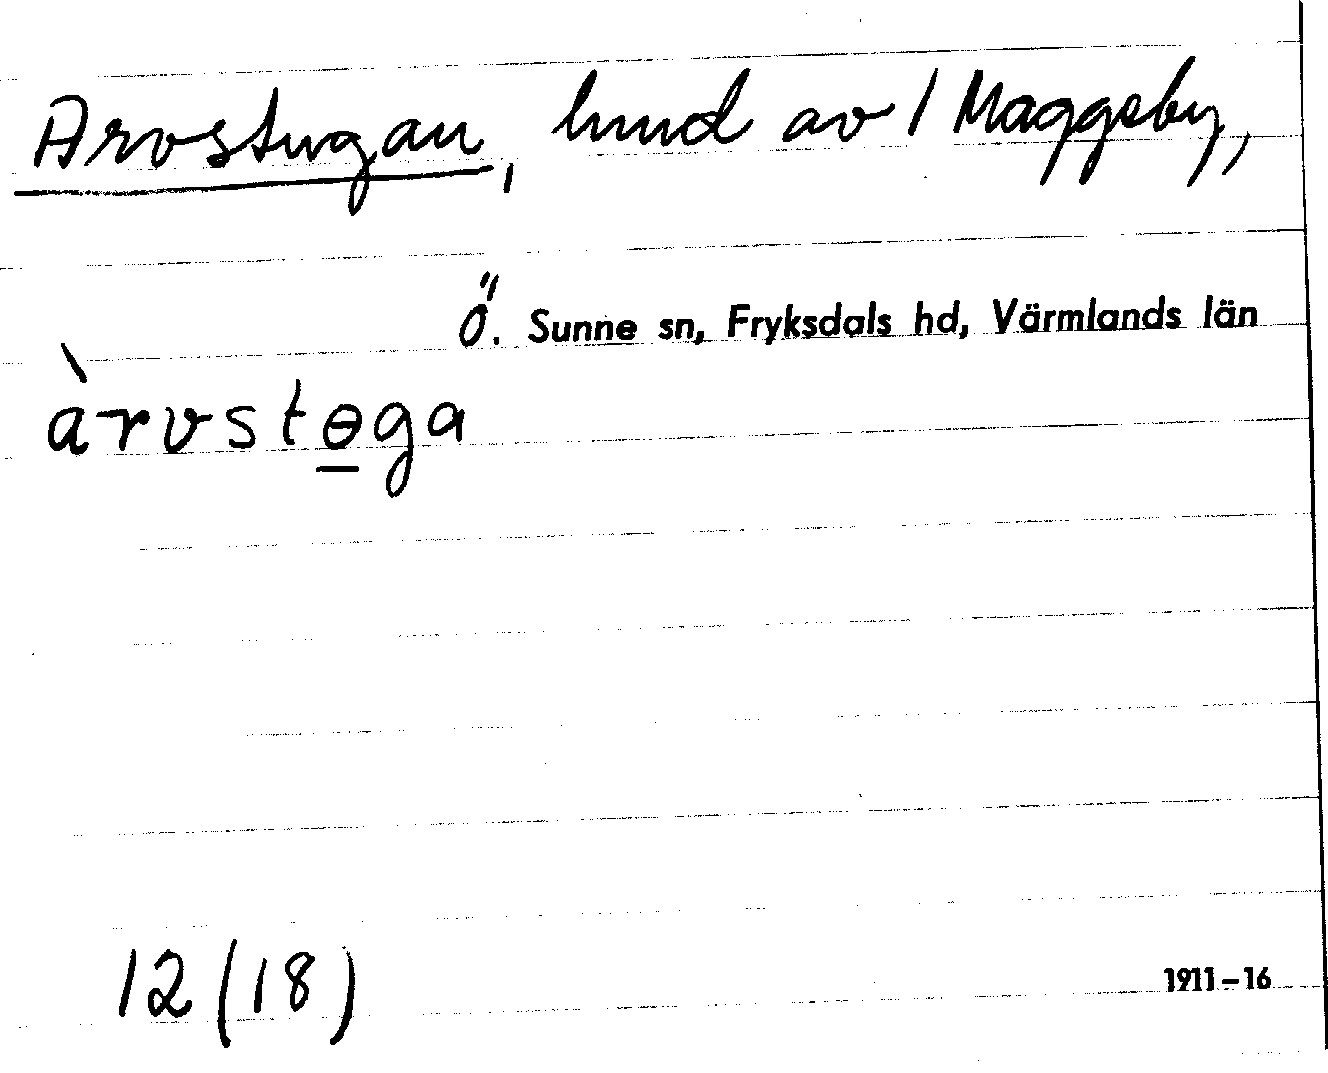 Arvstugan, lund av 1 Maggeby,
Ö. Sunne sn, Fryksdals hd, Värmlands län
àrvstɵga
12 (18)
1911–16